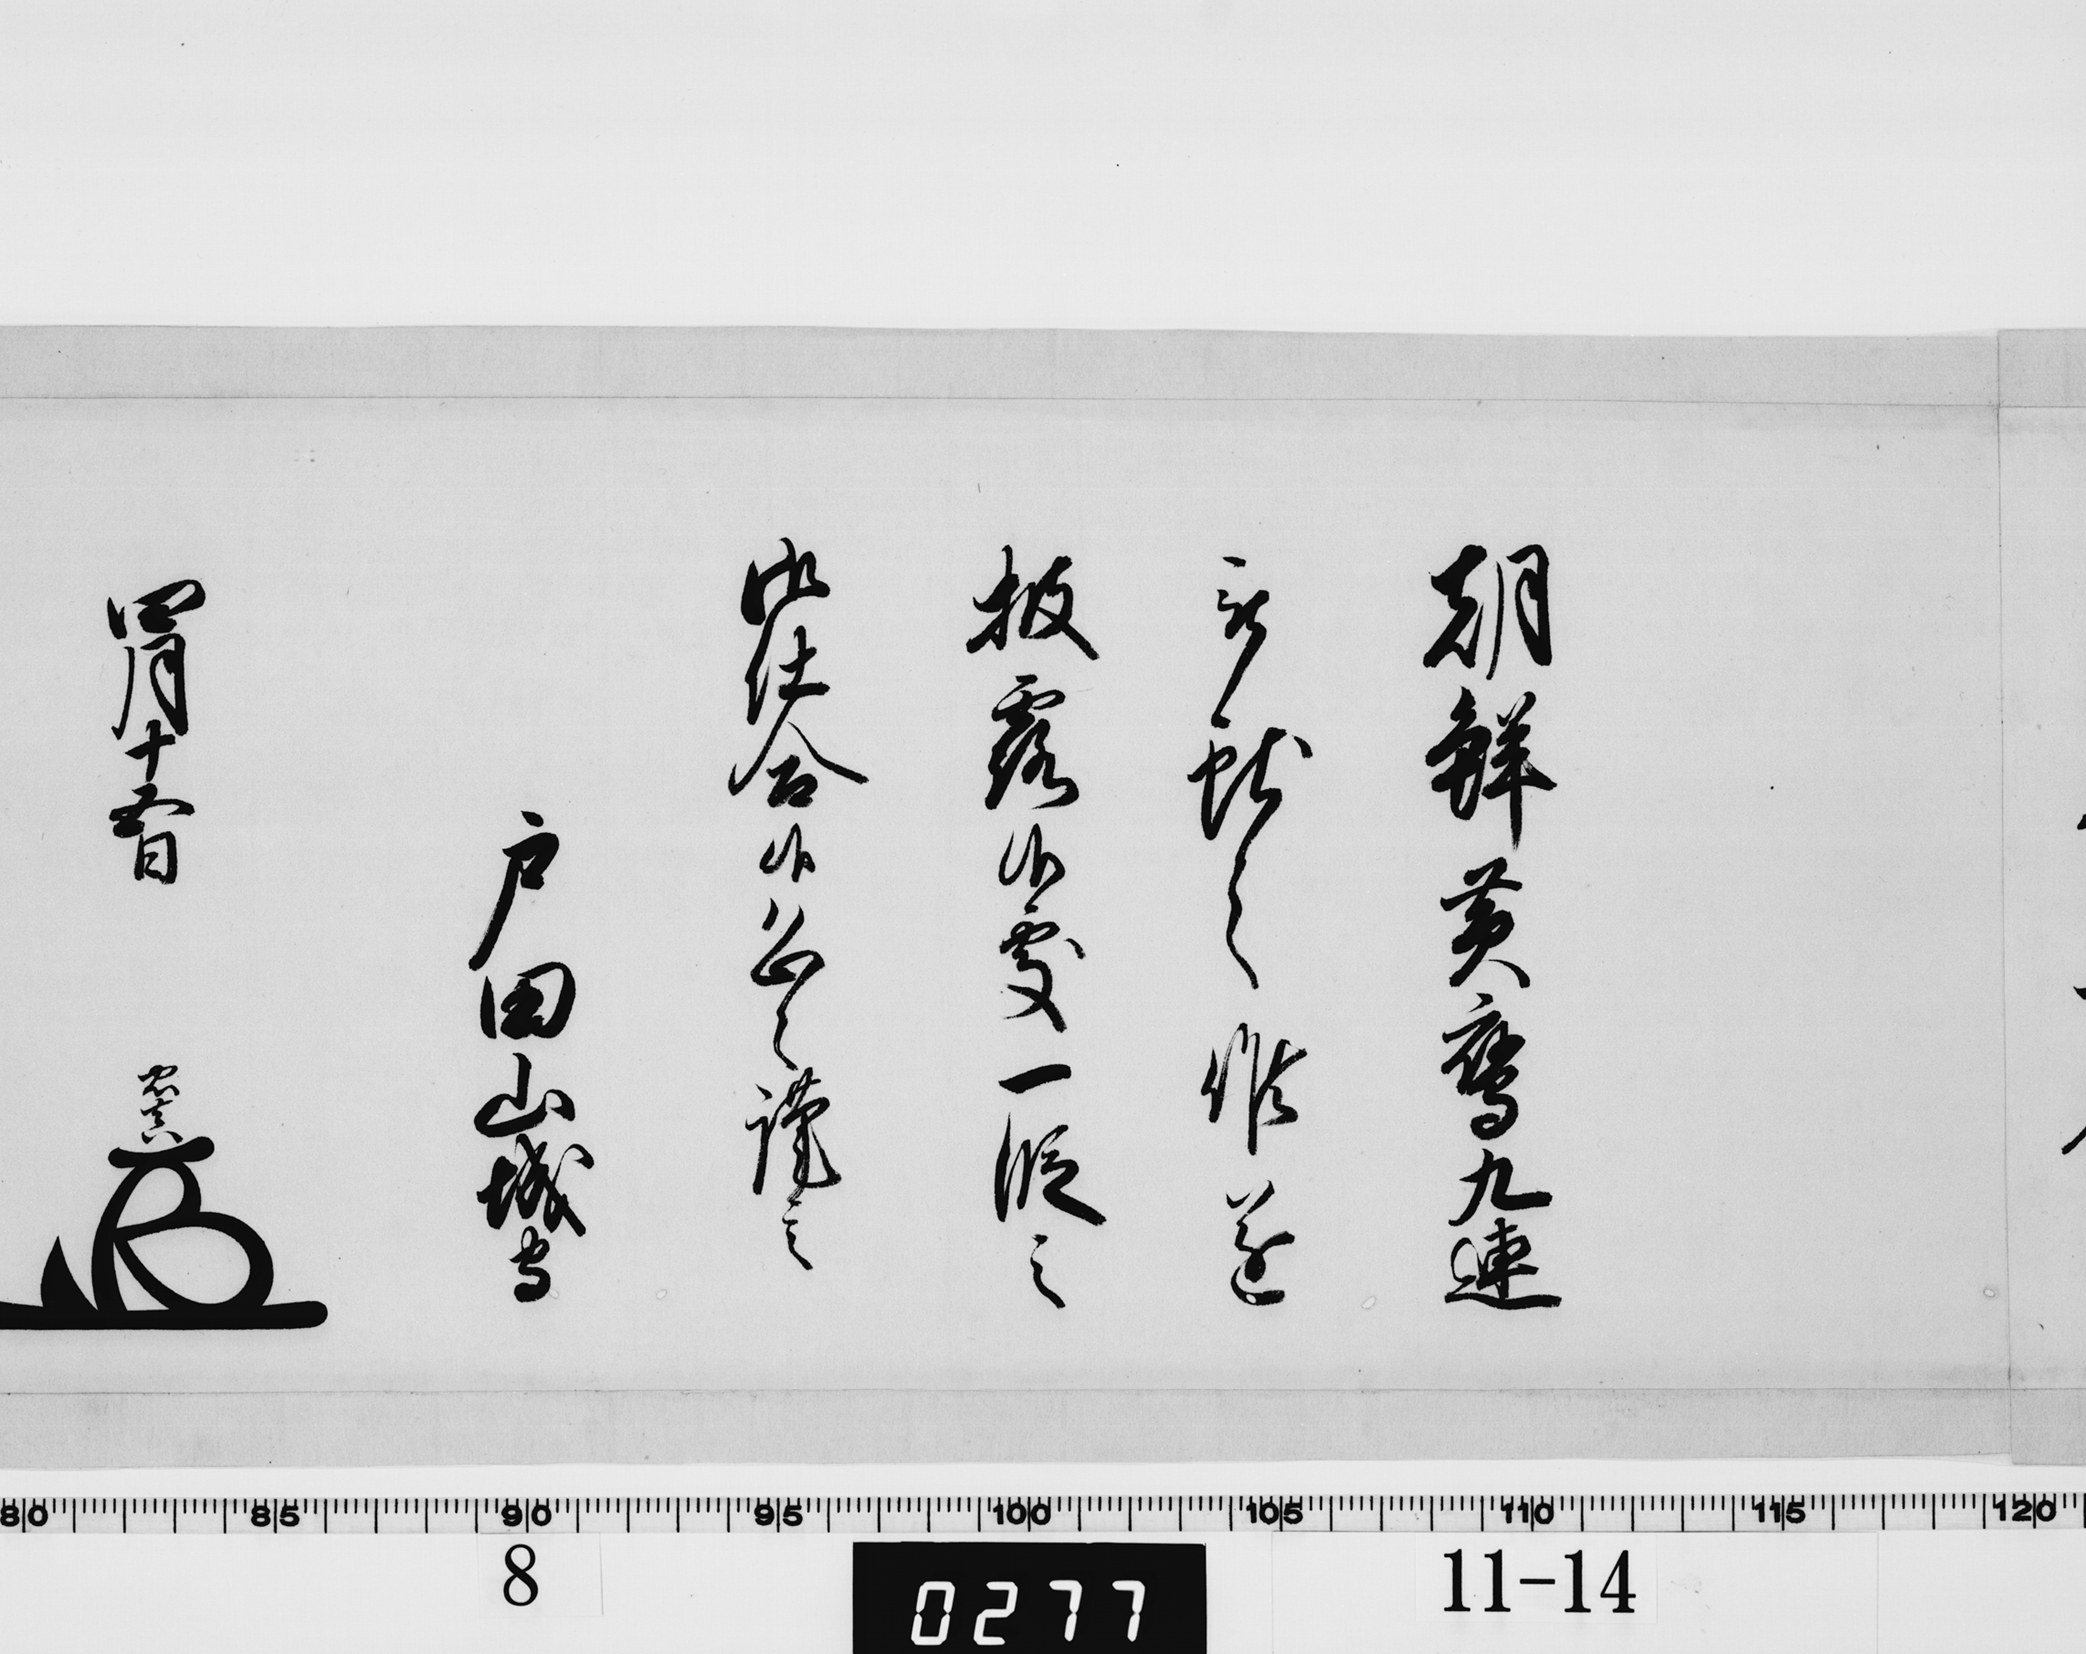 朝鮮黄鷹九連
被献之遂
披露候処一段之
御仕合候恐々謹言
戸田山城守
四月十五日
忠真
80 85 90 95 100 105 110 115 120
8 0277 11-14